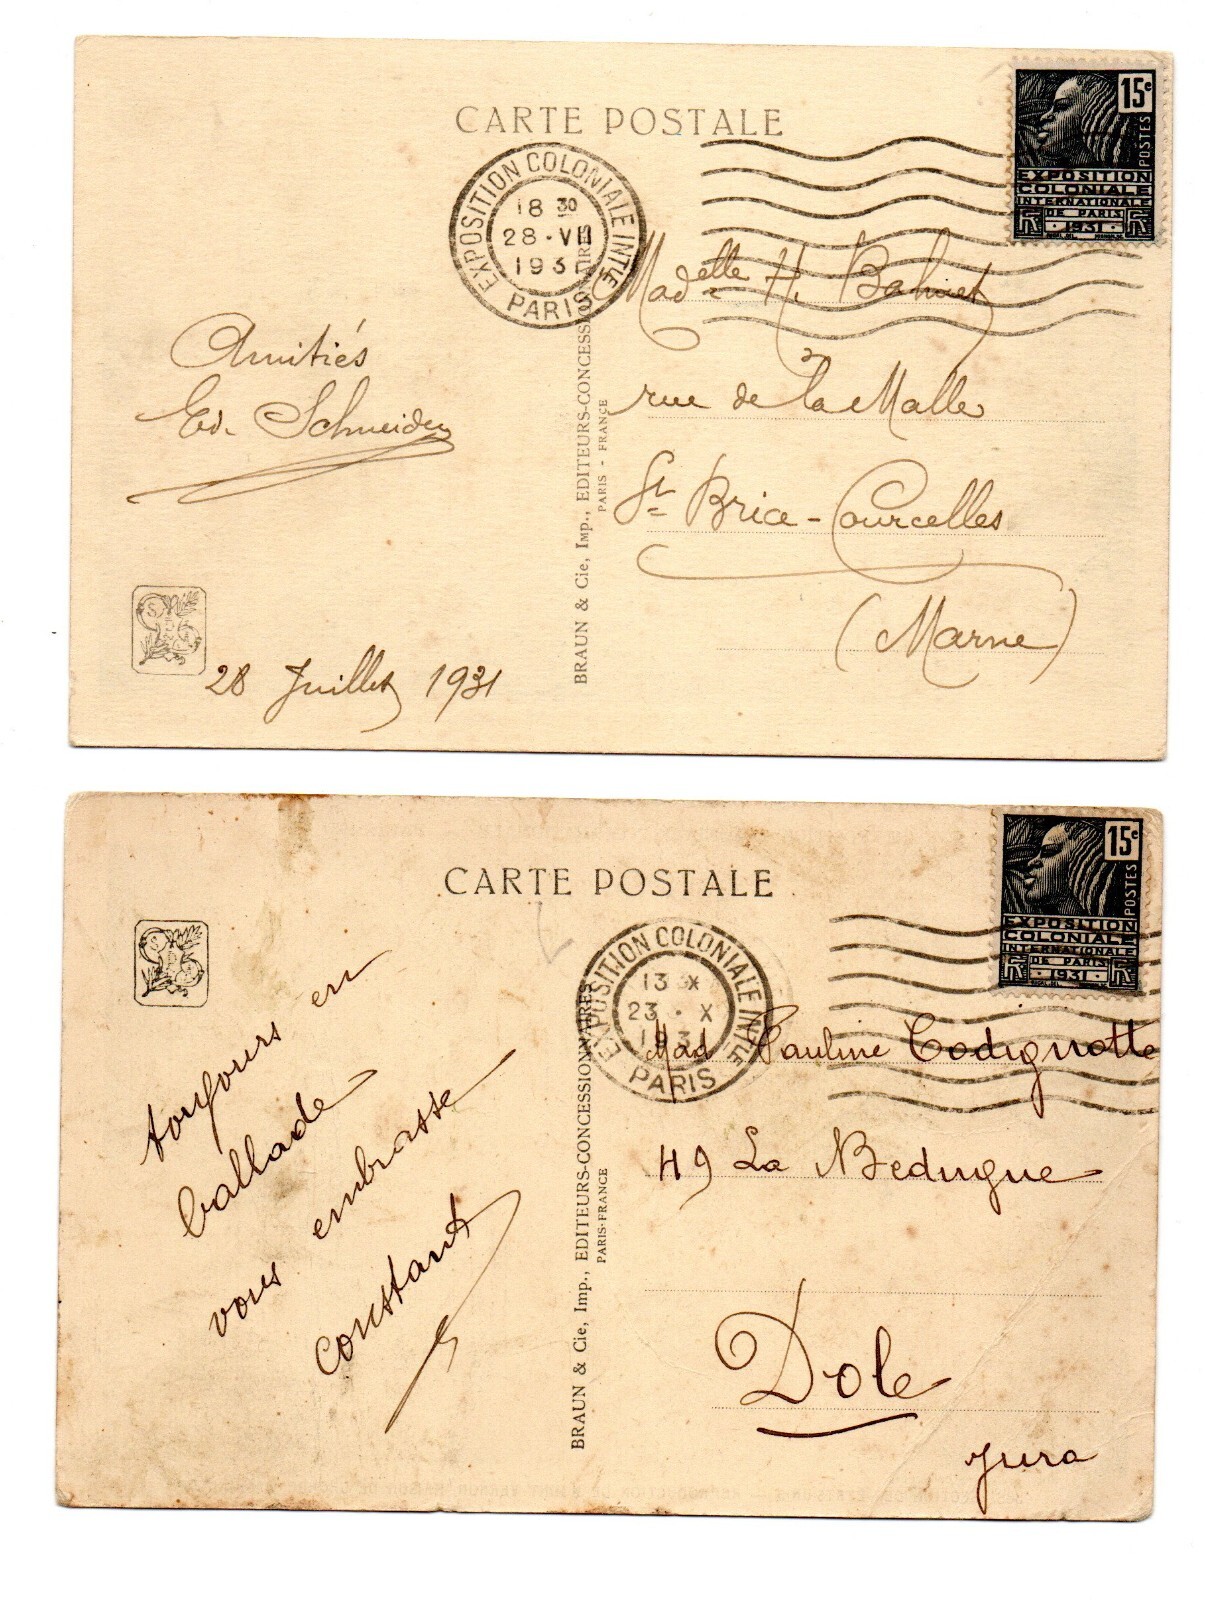 CARTE POSTALE
15c
POSTES
EXPOSITION
COLONIALE
INTERNATIONALE
DE PARIS
1931
EXPOSITION COLONIALE INTLE
18 30
28 · VII
1931
PARIS
Madelle H.
rue de la Malle
St Brice-Courcelles
(Marne)
Amitiés
Ed. Schneider
28 Juillet 1931
BRAUN & Cie, Imp., EDITEURS-CONCESSIONNAIRES
PARIS - FRANCE
CARTE POSTALE
15c
POSTES
EXPOSITION
COLONIALE
INTERNATIONALE
DE PARIS
1931
EXPOSITION COLONIALE INTLE
13 *
23 · X
1931
PARIS
Mad Pauline Codignotte
49 La Bedugue
Dole
Jura
toujours en
ballade
vous embrasse
constant
BRAUN & Cie, Imp., EDITEURS-CONCESSIONNAIRES
PARIS-FRANCE